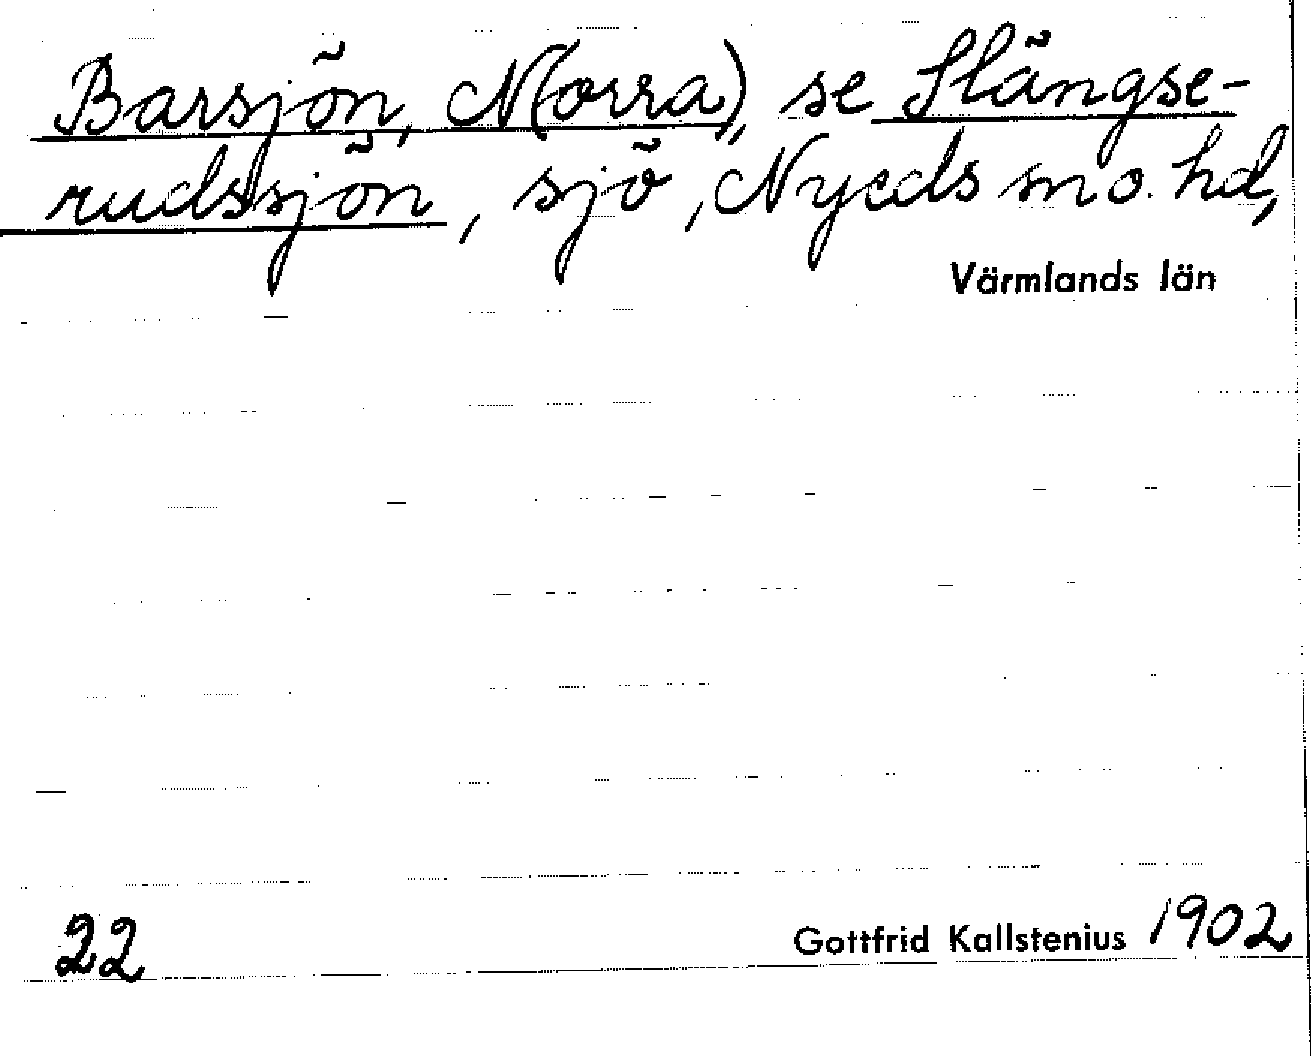 Barsjön, N(orra), se Slängse-
rudssjön, sjö, Nyeds sn o. hd,
Värmlands län
22
Gottfrid Kallstenius 1902